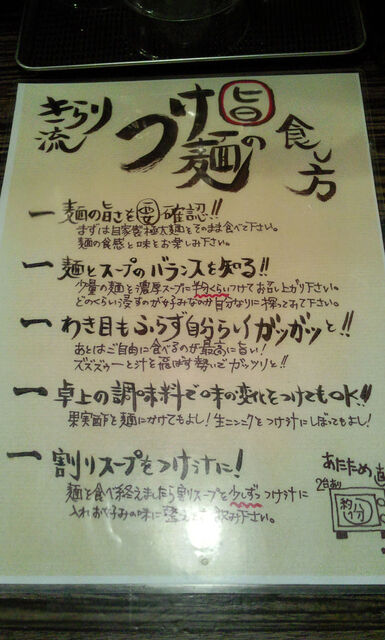 きらり一流
つけ麺の旨食し方
一 麺の旨さを要確認!!
まずは自家製極太麺をそのまま食べて下さい。
麺の食感と味をお楽しみ下さい。
一 麺とスープのバランスを知る!!
少量の麺を濃厚スープに半分くらいつけてお召し上がり下さい。
どのくらい浸すのが好みなのか自分なりに探ってみて下さい。
一 わき目もふらず自分らしくガツガツと!!
あとはご自由に食べるのが最高に旨い!
ズズズゥーと汁を飛ばす勢いでガッツリと!!
一 卓上の調味料で味の変化をつけてもOK!!
果実酢を麺にかけてもよし!生ニンニクをつけ汁にしぼってもよし!
一 割りスープをつけ汁に!
麺を食べ終えましたら割りスープを少しずつつけ汁に
入れお好みの味に整えお飲み下さい。
あたため
2台あり
約1分